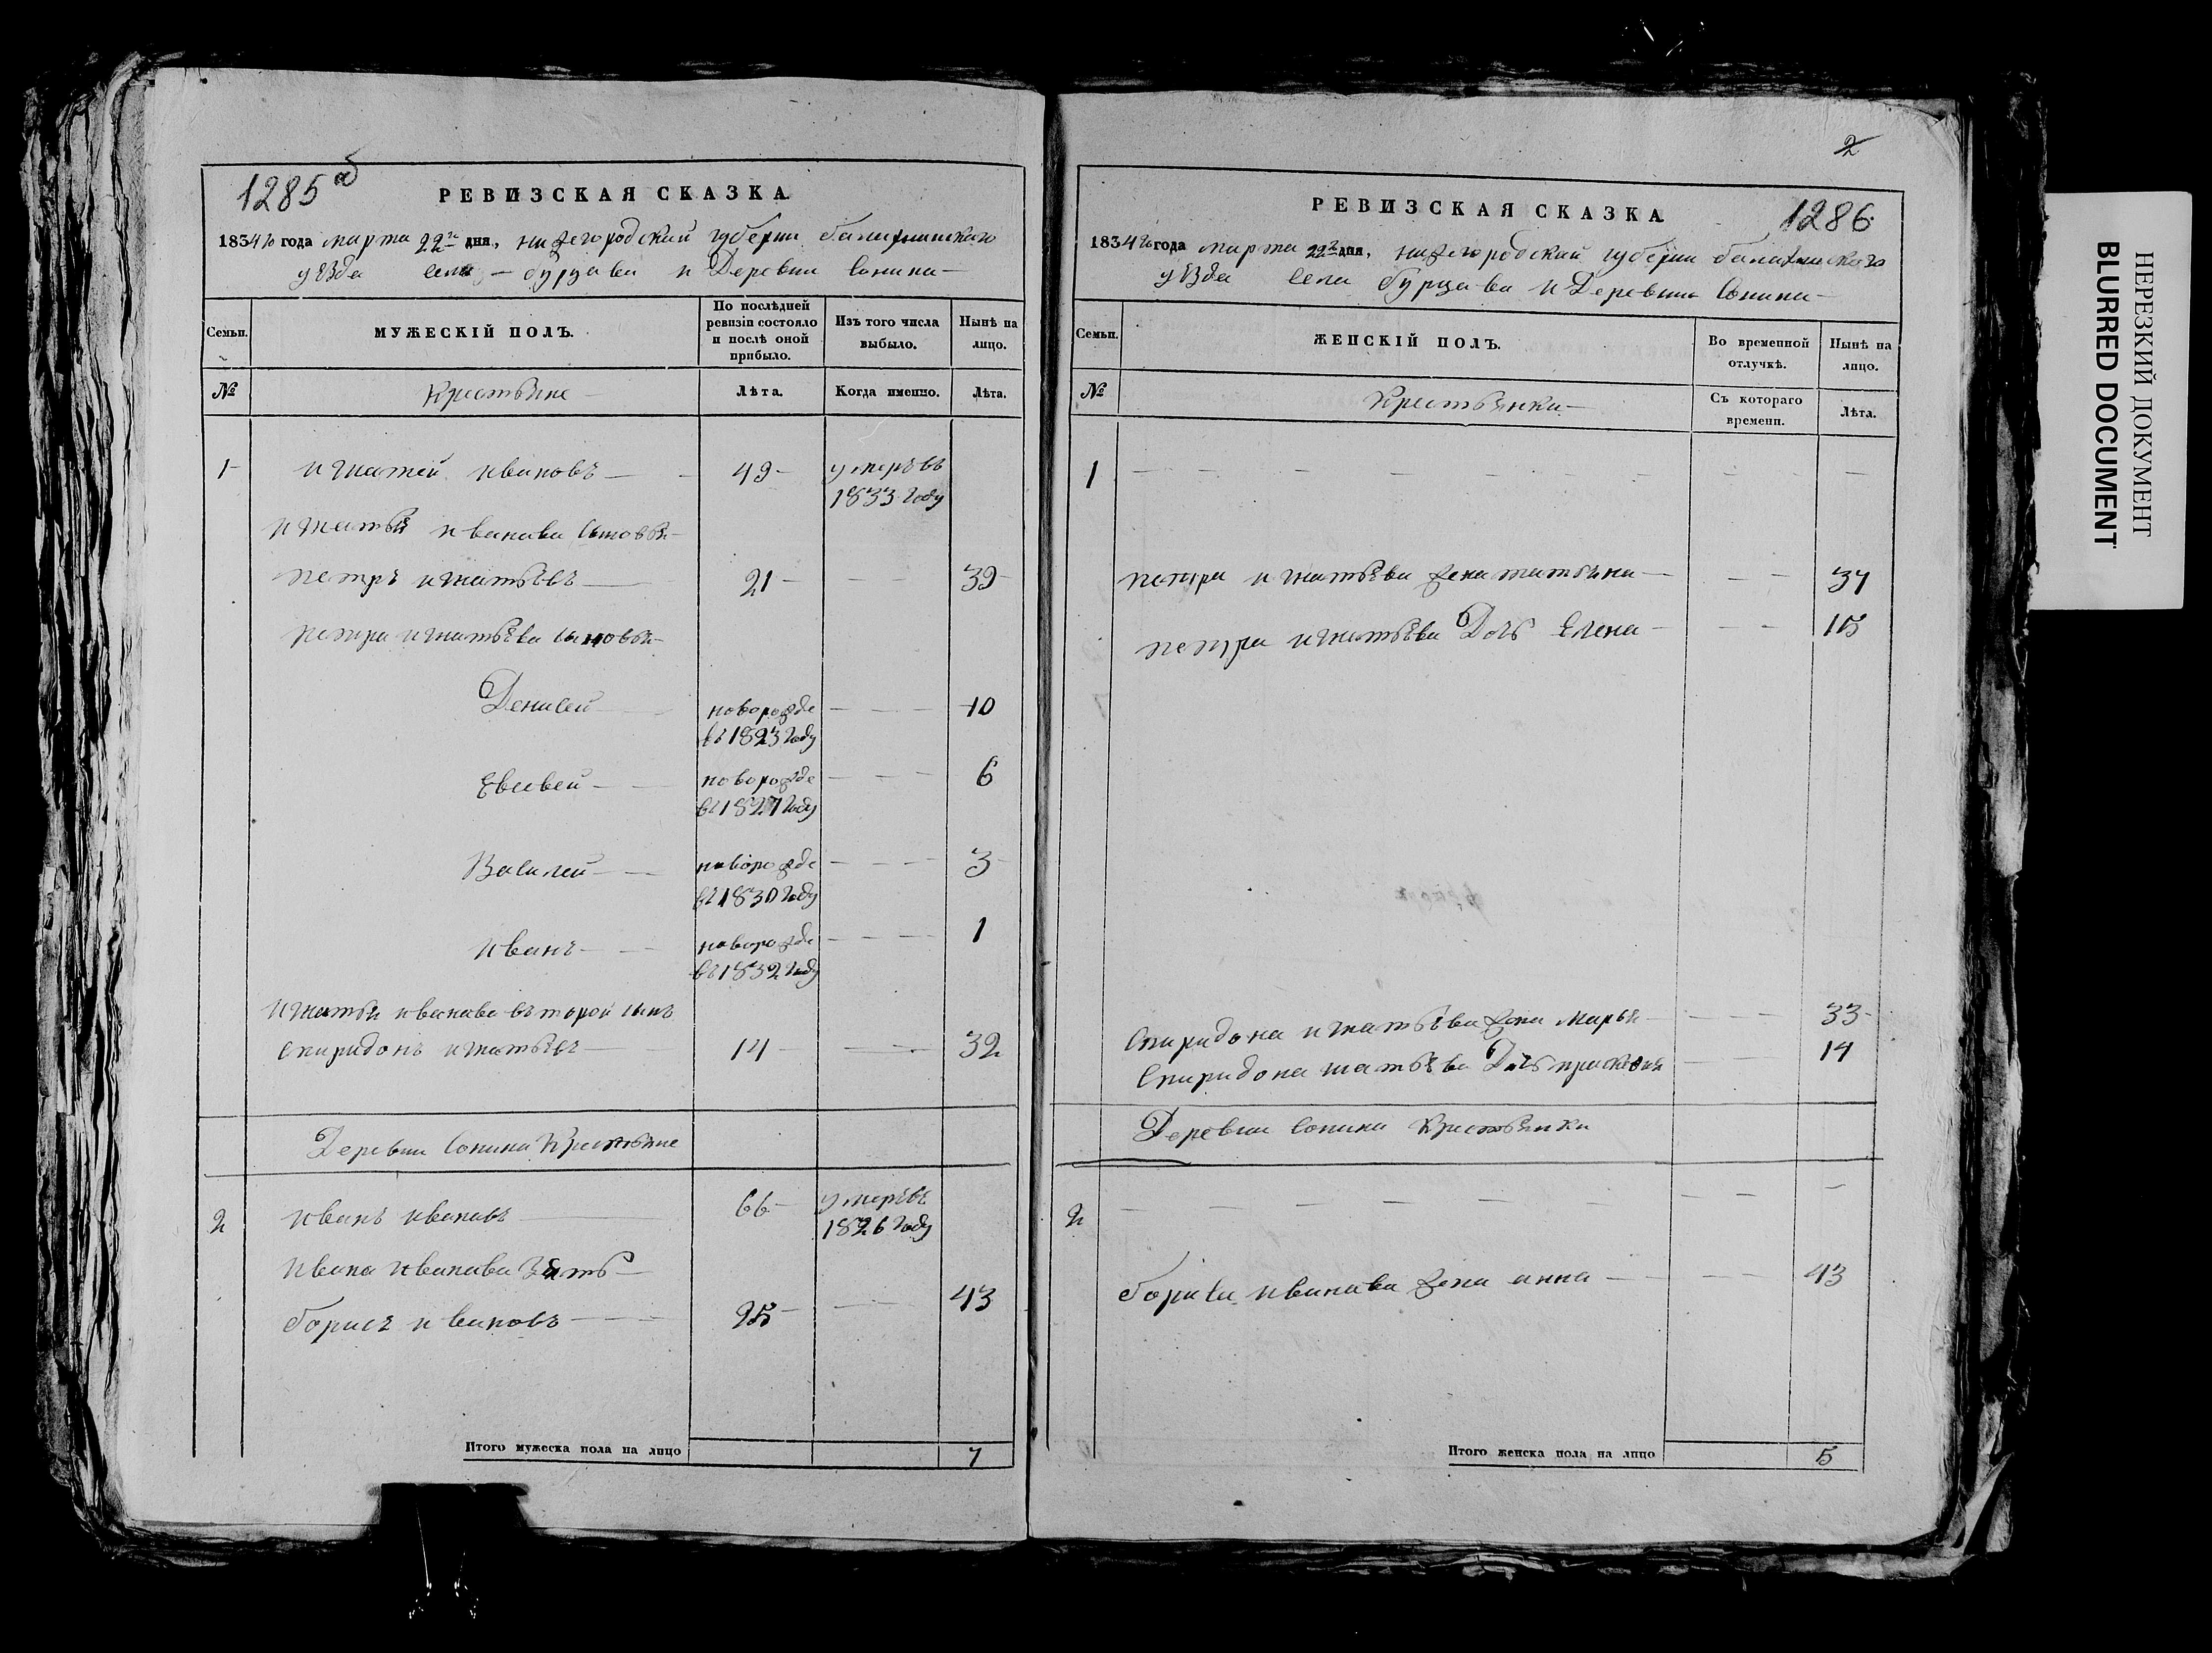 1285 об
РЕВИЗСКАЯ СКАЗКА
1834го года марта 22го дня, нижегородской губерни балахнинскаго
уѣзда села бурцава и Деревни Сонина
Семьи.
МУЖЕСКІЙ ПОЛЪ.
По послѣдней ревизіи состояло и послѣ оной прибыло.
Изъ того числа выбыло.
Нынѣ на лицо.
№
Крестьяне
Лѣта.
Когда именно.
Лѣта.
1 игнатей ивановъ 49 умеръ въ
1833 году
игнатья иванава сыновья
петръ игнатьевъ 21 39
петра игнатьева сыновья
Денисей новорожде 10
въ 1823 году
Евсевей новорожде 6
въ 1827 году
Василей новорожде 3
въ 1830 году
иванъ новорожде 1
въ 1832 году
игнатья иванава въторой сынъ
спиридонъ игнатьевъ 14 32
Деревни Сонина Крестьяне
2 иванъ иванавъ 66 умеръ въ
1826 году
ивана иванава Зять
борисъ ивановъ 25 43
Итого мужеска пола на лицо 7
2
1286
РЕВИЗСКАЯ СКАЗКА
1834го года марта 22го дня, нижегородской губерни балахнискаго
уѣзда села бурцава и Деревни Сонина
Семьи.
ЖЕНСКІЙ ПОЛЪ.
Во временной отлучкѣ.
Нынѣ на лицо.
№
Крестьянки
Съ котораго времени.
Лѣта.
1
петра игнатьева жена татьяна 34
петра игнатьева Дочь Елена 15
Спиридона игнатьева жена марья 33
Спиридона Дочь прасковья 14
Деревни Сонина Крестьянки
2
бориса иванава жена анна 43
Итого женска пола на лицо 5
НЕРЕЗКИЙ ДОКУМЕНТ
BLURRED DOCUMENT